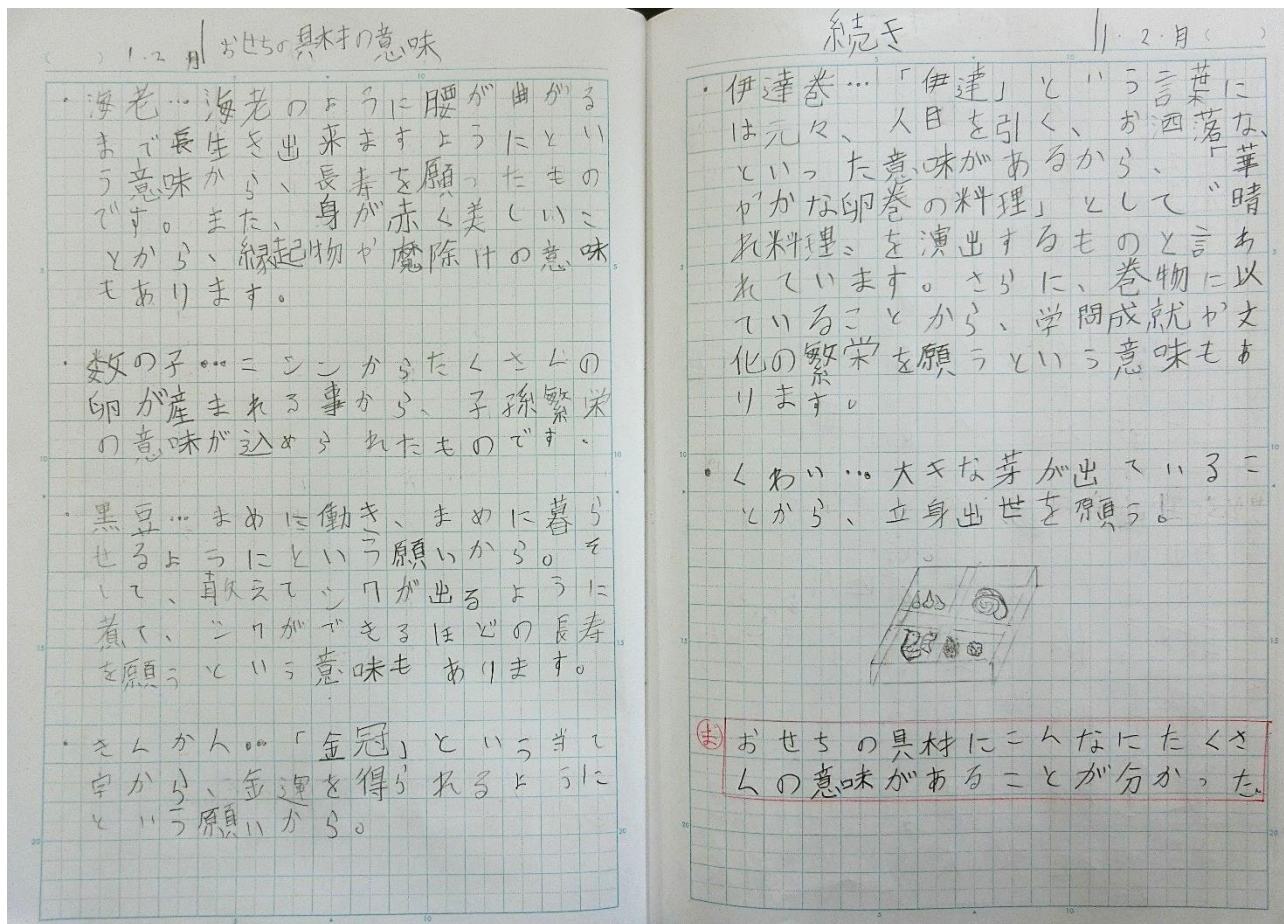 1.2 月 おせちの具材の意味
・海老…海老のように腰が曲がる
まで長生き出来ますようにとい
う意味から、長寿を願ったもの
です。また、身が赤く美しいこ
とから、縁起物や魔除けの意味
もあります。
・数の子…ニシンからたくさんの
卵が産まれる事から、子孫繁栄
の意味が込められたものです.
・黒豆…まめに働き、まめに暮ら
せるようにという願いから。そ
して、敢えてシワが出るように
煮て、シワができるほどの長寿
を願うという意味もあります。
・きんかん…「金冠」という当て
字から、金運を得られるように
という願いから。
続き 1.2.月
・伊達巻…「伊達」という言葉に
は元々、人目を引く、お洒落な、
といった意味があるから、「華
やかな卵巻の料理」として〝晴
れ料理〟を演出するものと言わ
れています。さらに、巻物に以
ていることから、学問成就や文
化の繁栄を願うという意味もあ
ります。
・くわい…大きな芽が出ているこ
とから、立身出世を願う。
ま おせちの具材にこんなにたくさ
んの意味があることが分かった。